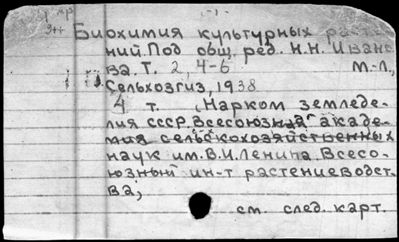 Биохимия культурных расте-
ний. Под общ. ред. Н.Н. Ивано-
ва. Т. 2, 4-6. М.-Л.,
Сельхозгиз, 1938
4 т. (Нарком земледе-
лия СССР. Всесоюзная акаде-
мия сельскохозяйственных
наук им. В.И. Ленина. Всесо-
юзный ин-т растениеводст-
ва,
см. след. карт.